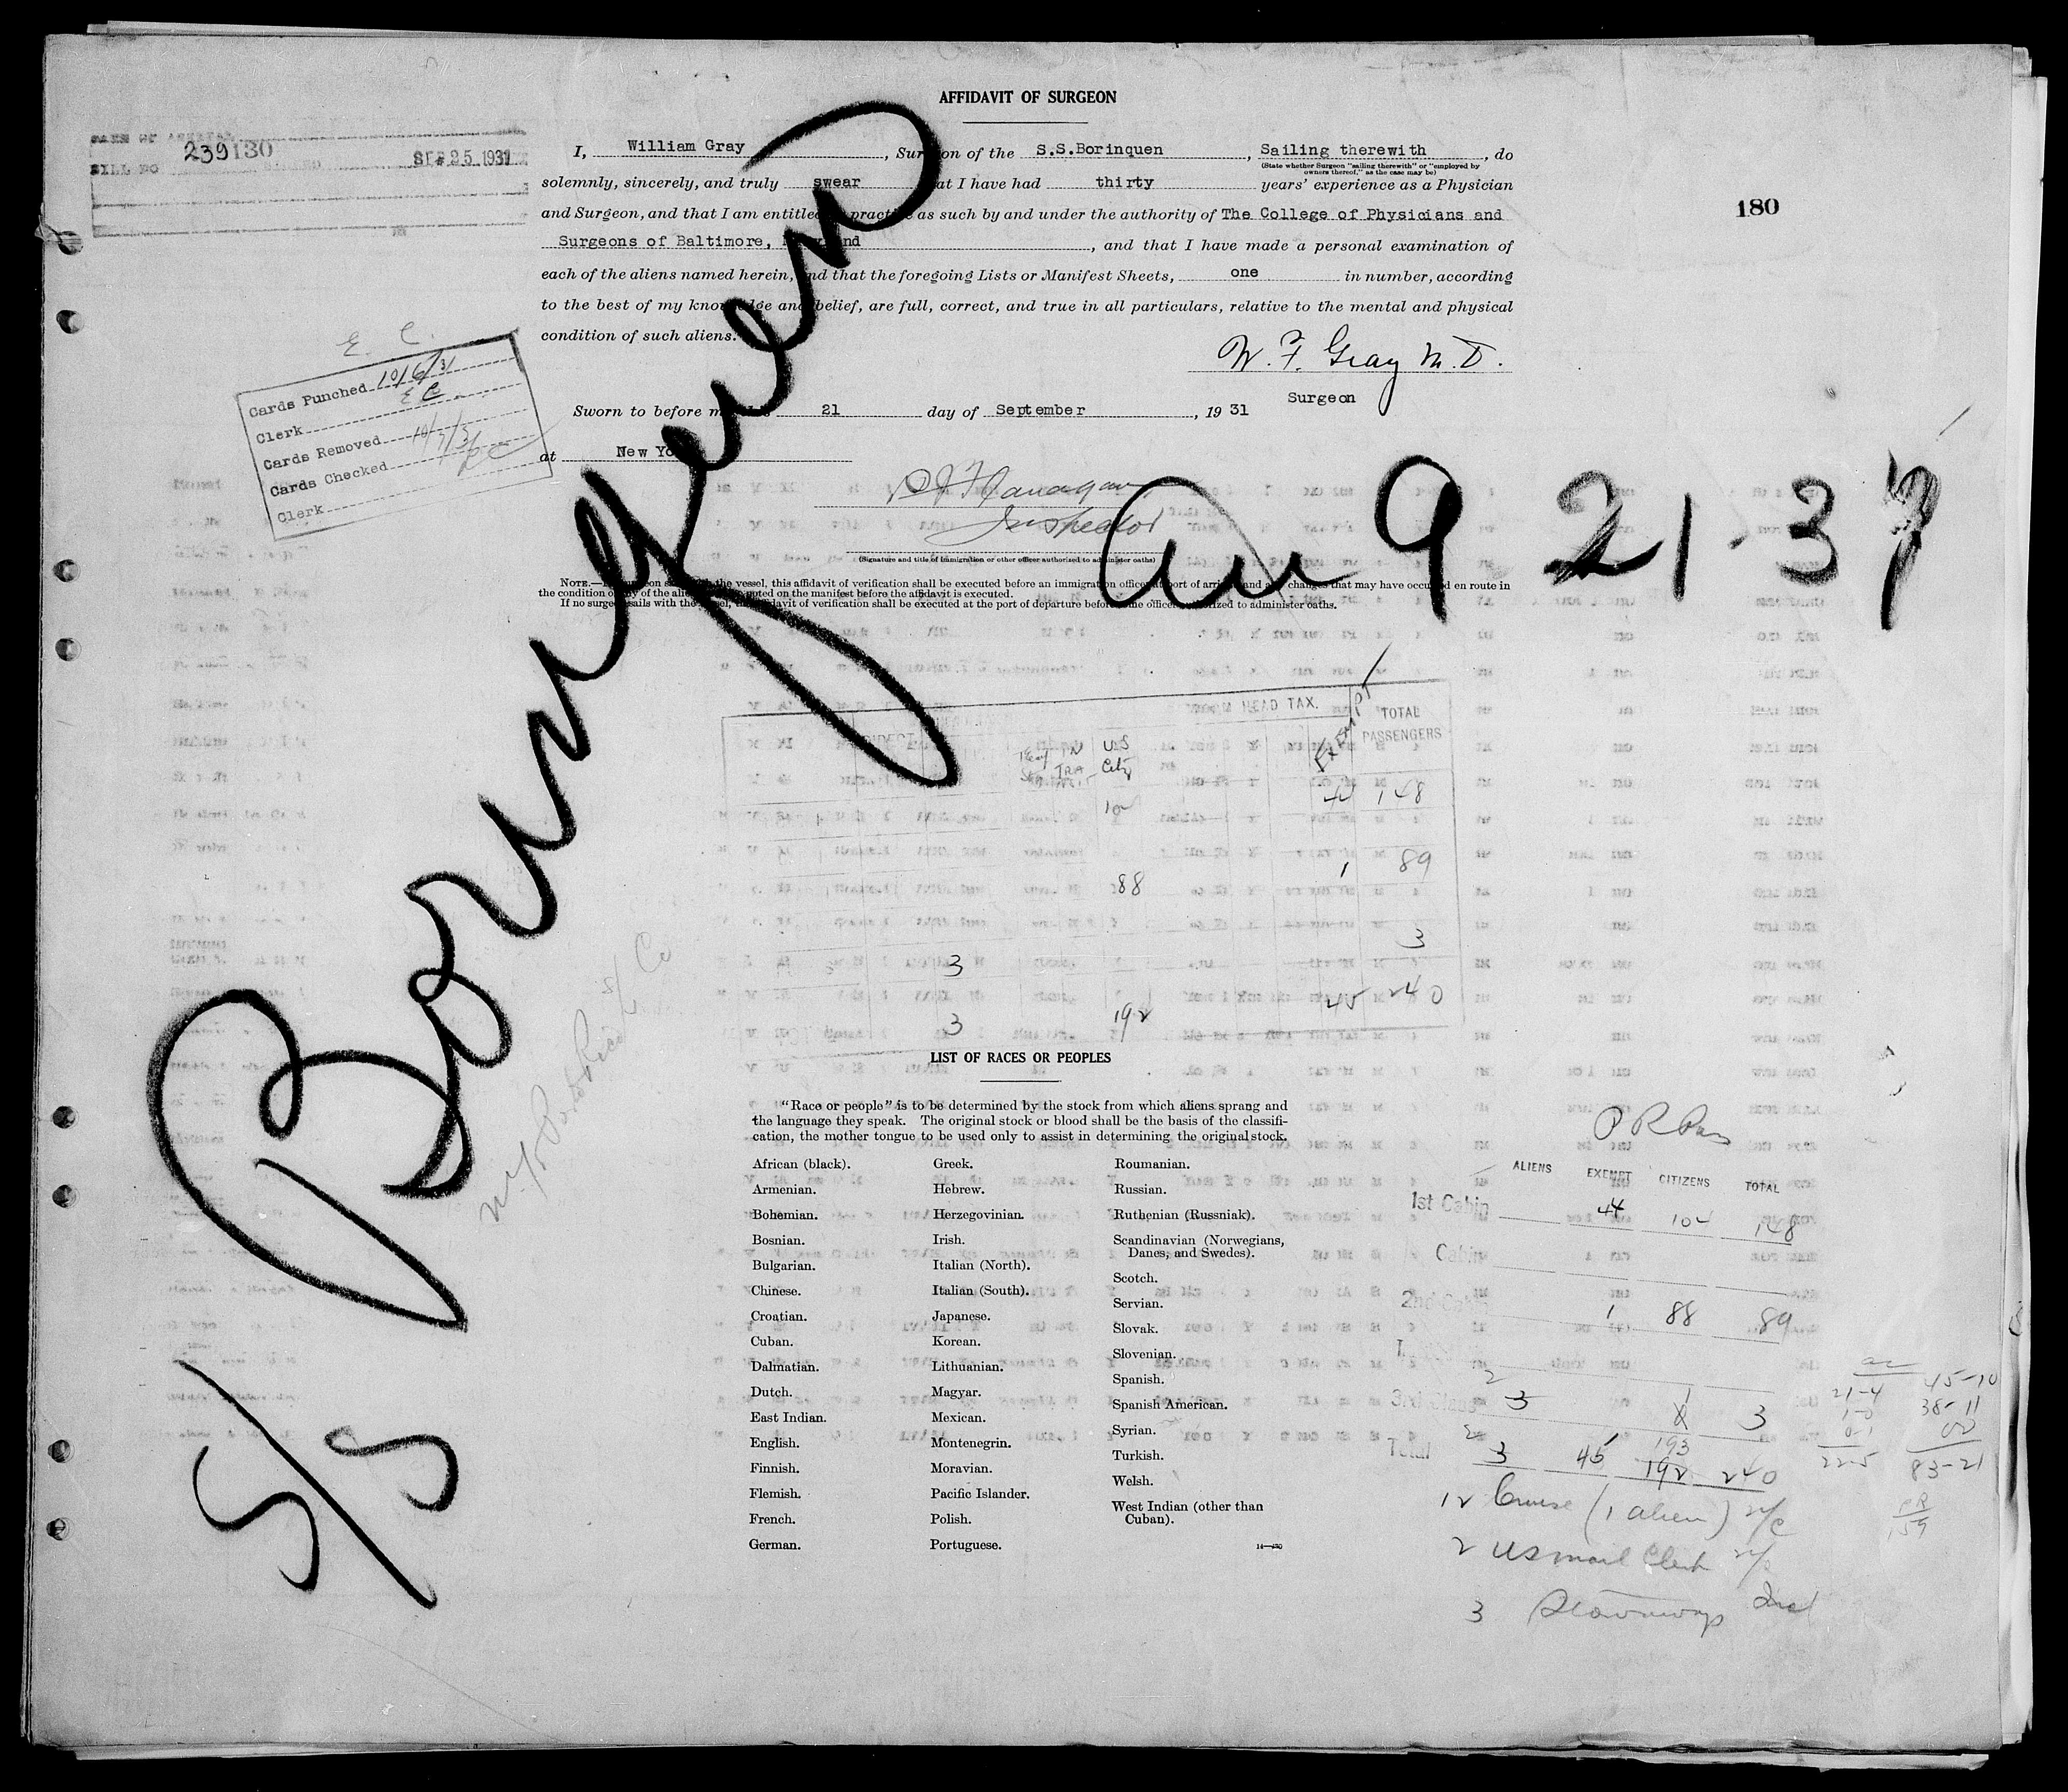 AFFIDAVIT OF SURGEON
239130
BILL NO
SEP 25 1931
I, William Gray, Surgeon of the S.S.Borinquen, Sailing therewith, do
(State whether Surgeon "sailing therewith" or "employed by owners thereof," as the case may be)
solemnly, sincerely, and truly swear that I have had thirty years' experience as a Physician
and Surgeon, and that I am entitled to practice as such by and under the authority of The College of Physicians and
Surgeons of Baltimore, Maryland, and that I have made a personal examination of
each of the aliens named herein, and that the foregoing Lists or Manifest Sheets, one in number, according
to the best of my knowledge and belief, are full, correct, and true in all particulars, relative to the mental and physical
condition of such aliens.
180
W. F. Gray M.D.
Surgeon
Sworn to before me this 21 day of September, 1931
at New York
Inspector
(Signature and title of immigration or other officer authorized to administer oaths)
E. C.
Cards Punched 10/6/31
Clerk E C
Cards Removed
Cards Checked
Clerk
S/S Borinqueen
9 21-31
NOTE.—If surgeon sails with the vessel, this affidavit of verification shall be executed before an immigration officer at port of arrival and any changes that may have occurred en route in
the condition of any of the aliens noted on the manifest before the affidavit is executed.
If no surgeon sails with the vessel, this affidavit of verification shall be executed at the port of departure before some officer authorized to administer oaths.
HEAD TAX.
EXEMPT
TOTAL PASSENGERS
US
44 148
88 1 89
3 3
3 192 45 240
LIST OF RACES OR PEOPLES
"Race or people" is to be determined by the stock from which aliens sprang and
the language they speak. The original stock or blood shall be the basis of the classifi-
cation, the mother tongue to be used only to assist in determining the original stock.
African (black).
Armenian.
Bohemian.
Bosnian.
Bulgarian.
Chinese.
Croatian.
Cuban.
Dalmatian.
Dutch.
East Indian.
English.
Finnish.
Flemish.
French.
German.
Greek.
Hebrew.
Herzegovinian.
Irish.
Italian (North).
Italian (South).
Japanese.
Korean.
Lithuanian.
Magyar.
Mexican.
Montenegrin.
Moravian.
Pacific Islander.
Polish.
Portuguese.
Roumanian.
Russian.
Ruthenian (Russniak).
Scandinavian (Norwegians,
Danes, and Swedes).
Scotch.
Servian.
Slovak.
Slovenian.
Spanish.
Spanish American.
Syrian.
Turkish.
Welsh.
West Indian (other than
Cuban).
ALIENS EXEMPT CITIZENS TOTAL
1st Cabin 44 104 148
Cabin
2nd Cabin 1 88 89
3rd Class 3 3
Total 3 45 192 240
193
45-10
21-4 38-11
22-5 83-21
PR
159
12 Cruise (1 alien) n/c
2 US mail Clerk
3 Stowaways